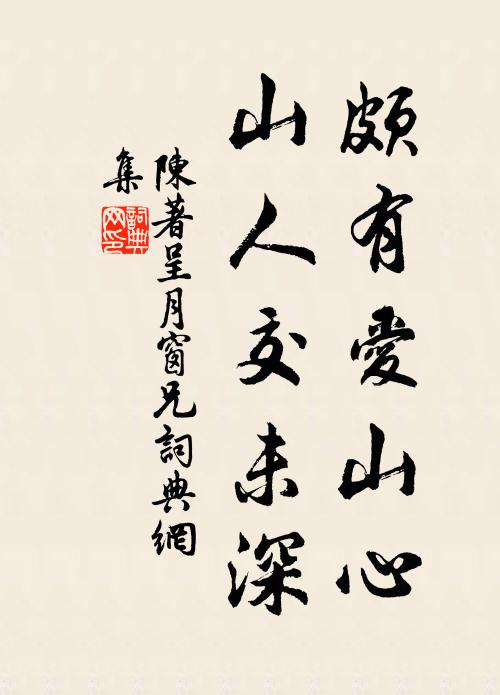 頗有愛山心
山人交未深
陳著呈月窗兄詞典網
集
詞典
网印